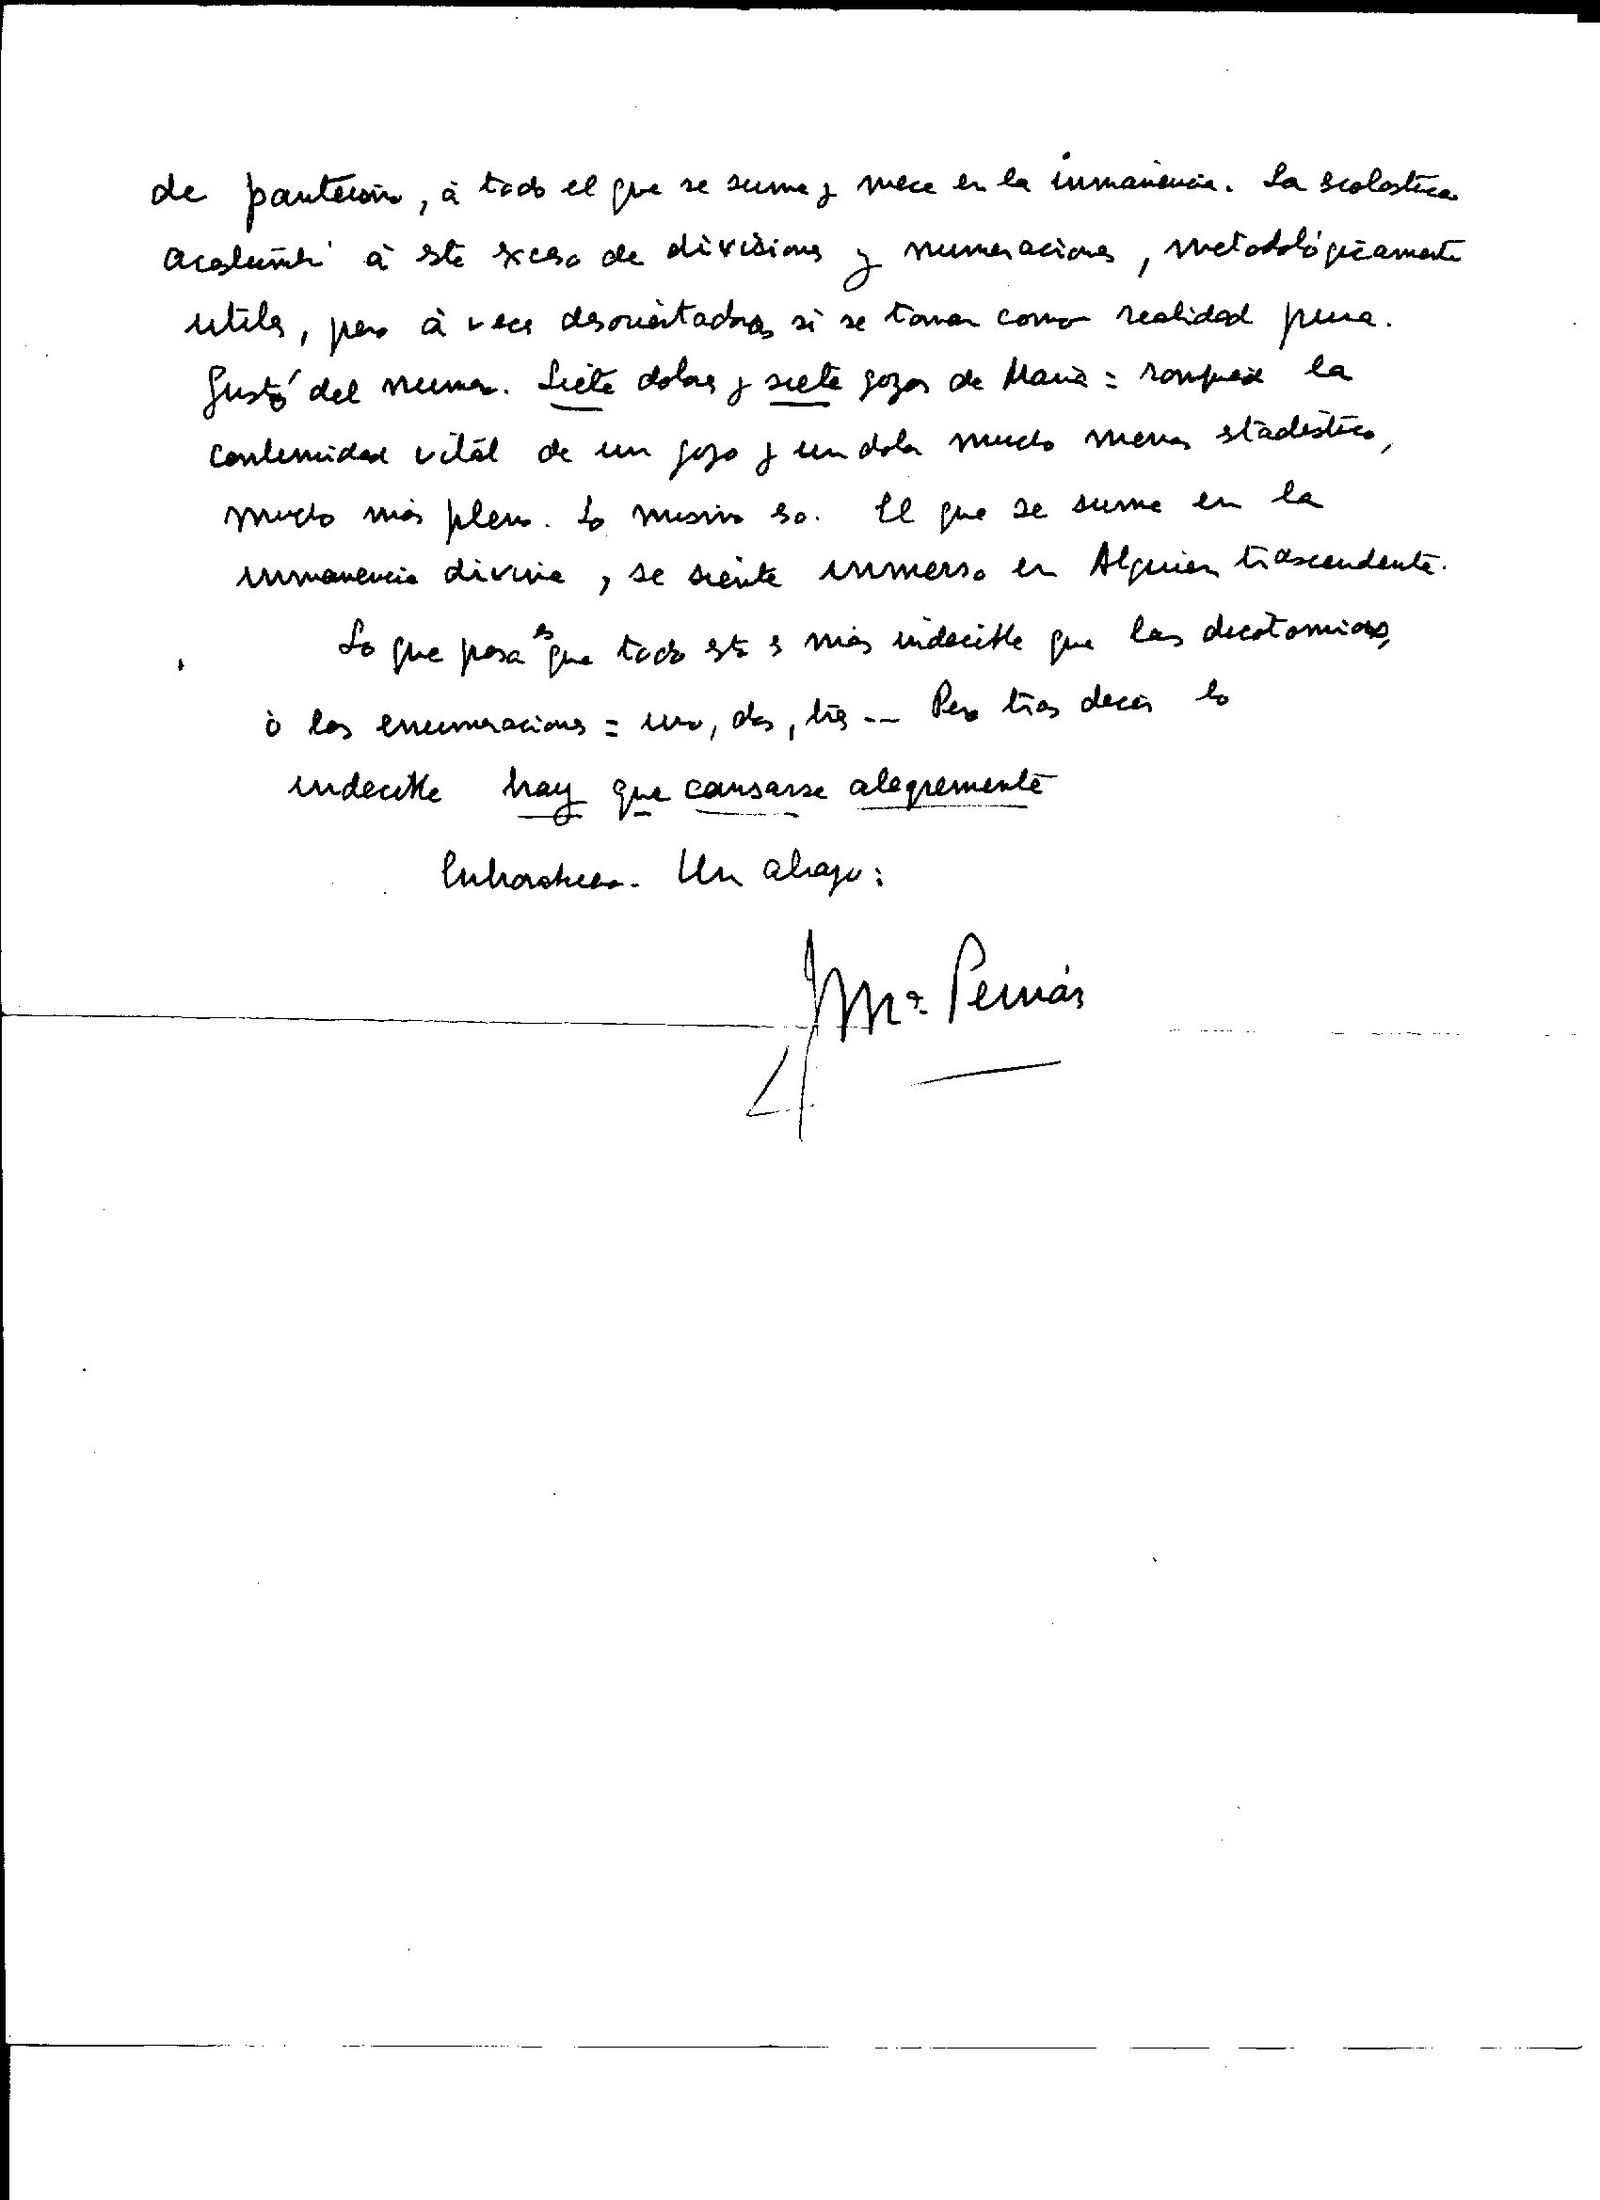 de panteismo, á todo el que se sume y mece en la inmanencia. La escolastica
acostumbró á este exceso de divisiones y numeraciones, metodológicamente
utiles, pero á veces desorientadoras si se toman como realidad pura.
Gustó del numero. Siete dolores y siete gozos de Maria = rompiendo la
continuidad vital de un gozo y un dolor mucho menos estadistico,
mucho más pleno. Lo mismo eso. El que se sume en la
inmanencia divina, se siente inmerso en Alguien trascendente.
Lo que pasa es que todo esto es más indecible que las dicotomias,
ó las enumeraciones = uno, dos, tres -- Pero tras decir lo
indecible hay que cansarse alegremente
Enhorabuena. Un abrazo:
J Mª Pemán